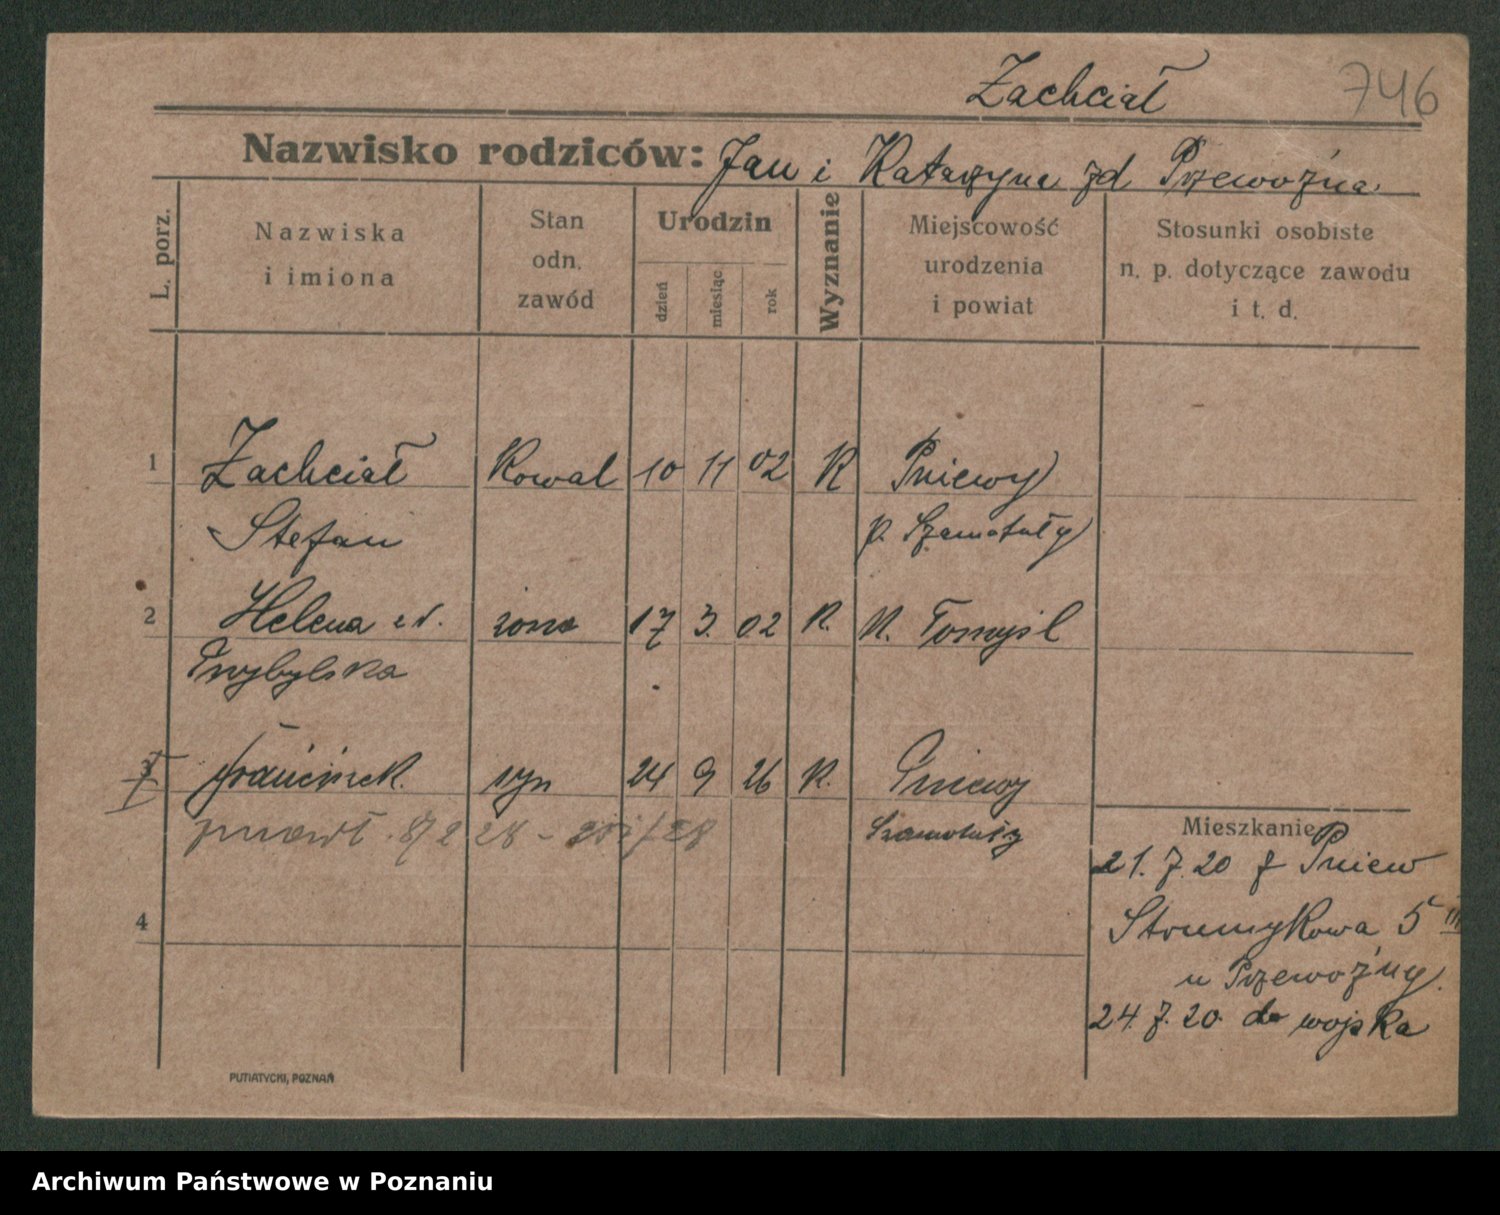 Zachciał 746
Nazwisko rodziców: Jan i Katarzyna zd Przewoźna
L. porz.
Nazwiska
i imiona
Stan
odn.
zawód
Urodzin
dzień
miesiąc
rok
Wyznanie
Miejscowość
urodzenia
i powiat
Stosunki osobiste
n. p. dotyczące zawodu
i t. d.
1 Zachciał Kowal 10 11 02 K Pniewy
Stefan p. Szamotuły
2 Helena zd. żona 17 3. 02 K. N. Tomyśl
Przybylska
3 Franciszek syn 24 9 26 K. Pniewy
8/2 28 – Szamotuły
Mieszkanie
21. 7. 20 z Pniew
4
Strumykowa 5 III
u Przewoźny.
24. 7. 20 do wojska
PUTIATYCKI, POZNAŃ
Archiwum Państwowe w Poznaniu